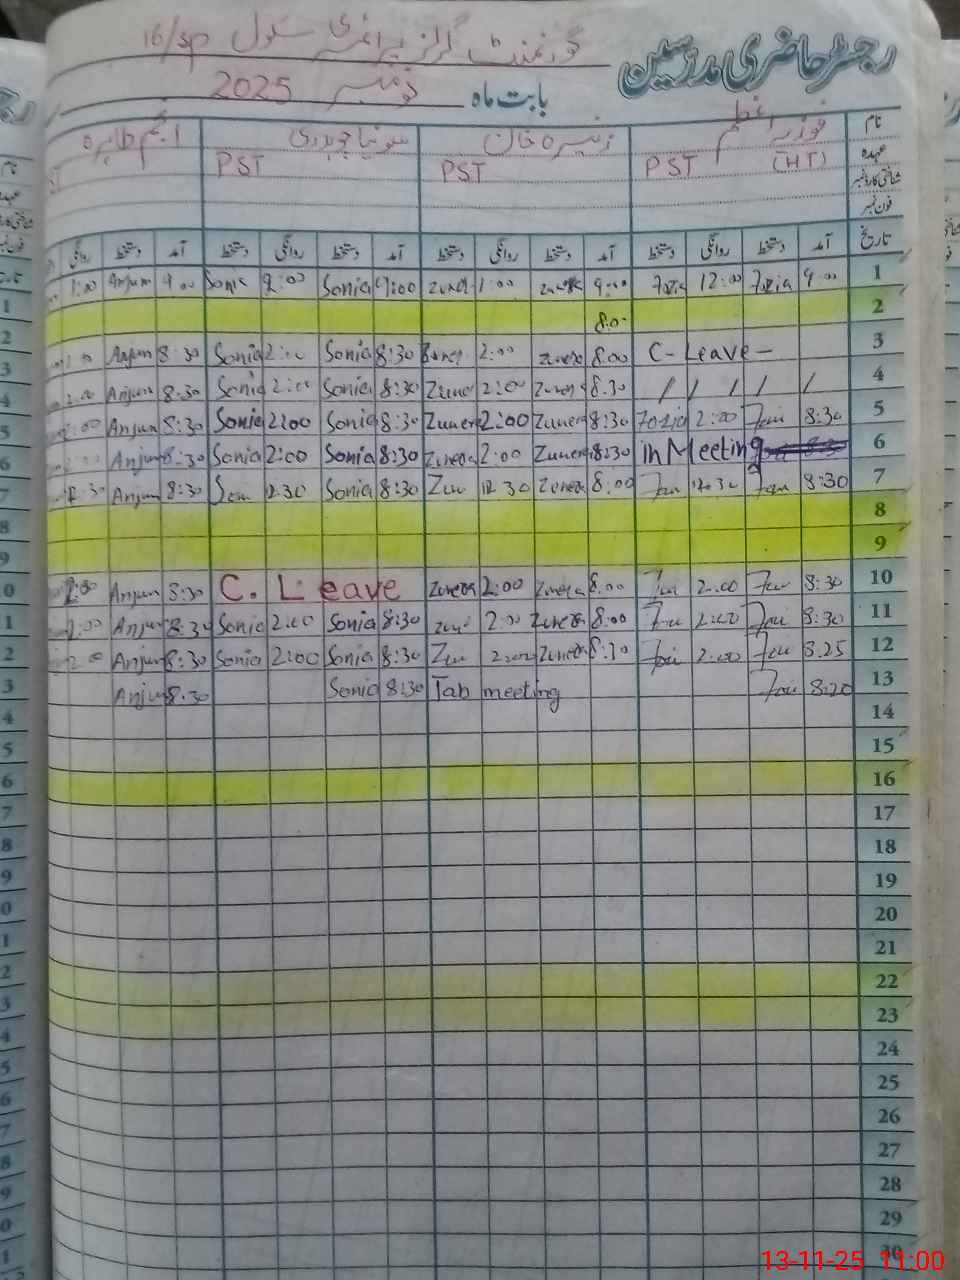 رجسٹر حاضری مدرسین
گورنمنٹ گرلز پرائمری سکول 16/SP
بابت ماہ نومبر 2025
نام فوزیہ اعظم زنیرہ خان سونیا چوہدری انجم طاہرہ
عہدہ PST (HT) PST PST
شناختی کارڈ نمبر
فون نمبر
تاریخ آمد دستخط روانگی دستخط آمد دستخط روانگی دستخط آمد دستخط روانگی دستخط آمد دستخط روانگی
1 9:00 Fozia 12:00 Fozia 9:00 1:00 9:00 Sonia 9:00 Anjum 1:00
2 8:0
3 C-Leave- 8:00 Zunera 2:00 8:30 Sonia 2:00 Sonia 8:30 Anjum
4 / / / / / 8:30 Zunera 2:00 8:30 Sonia 2:00 Sonia 8:30 Anjum 2:00
5 8:30 2:00 Fozia 8:30 Zunera 2:00 Zunera 8:30 Sonia 2:00 Sonia 8:30 Anjum 2:00
6 in Meeting 8:30 Zunera 2:00 Zunera 8:30 Sonia 2:00 Sonia 8:30 Anjum
7 8:30 12:30 8:00 Zunera 12:30 8:30 Sonia 12:30 8:30 Anjum 12:30
8
9
10 8:30 2:00 8:00 Zunera 2:00 Zunera C. Leave 8:30 Anjum 2:00
11 8:30 2:00 8:00 Zunera 2:00 8:30 Sonia 2:00 Sonia 8:30 Anjum 2:00
12 8:25 2:00 8:30 Zunera 2:00 8:30 Sonia 2:00 Sonia 8:30 Anjum 2:00
13 8:20 Tab meeting 8:30 Sonia 8:30 Anjum
14
15
16
17
18
19
20
21
22
23
24
25
26
27
28
29
30
13-11-25 11:00